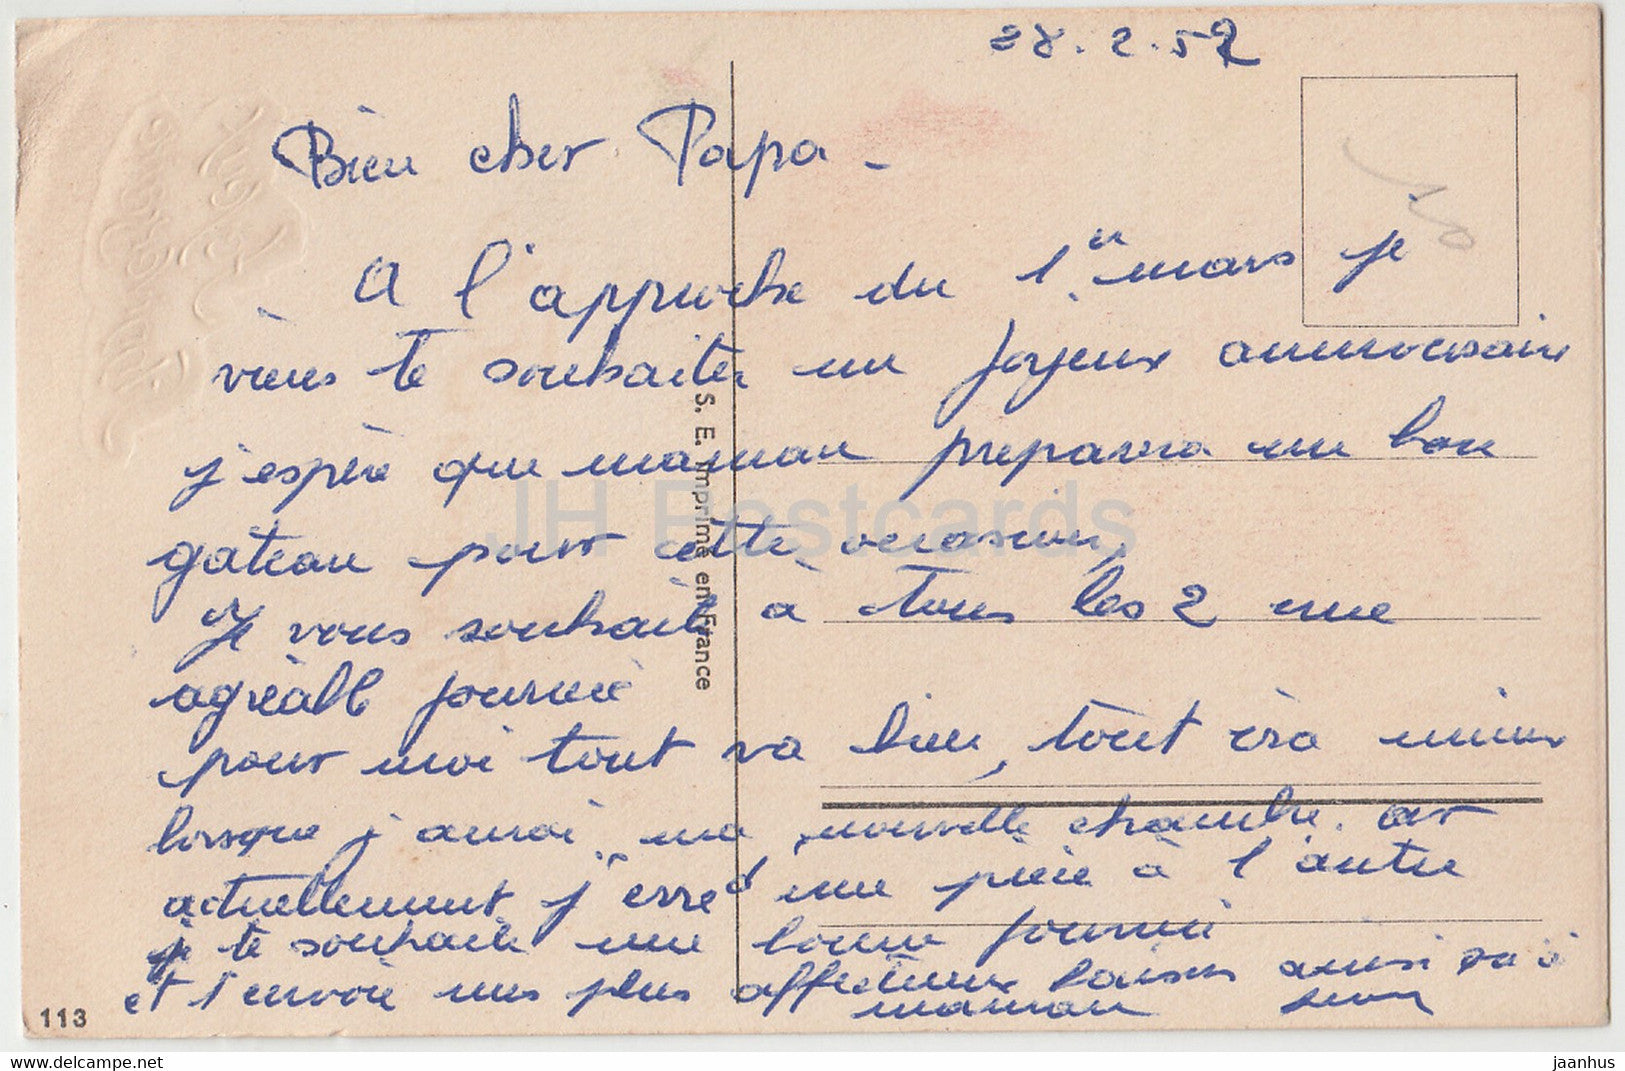 28.2.52
Bien cher Papa -
A l'approche du 1er mars je
viens te souhaiter un Joyeux anniversaire
j'espère que maman preparera un bon
gateau pour cette occasion,
Je vous souhaite à tous les 2 une
agréable journée
pour moi tout va bien, tout ira mieux
lorsque j'aurai ma nouvelle chambre. car
actuellement j'erre d'une pièce à l'autre
je te souhaite une bonne journée
et t'envoie mes plus affectueux baisers ainsi qu'à
maman
S. E. Imprimé en France
113
JH Postcards
hippostcard.com
jaanhus